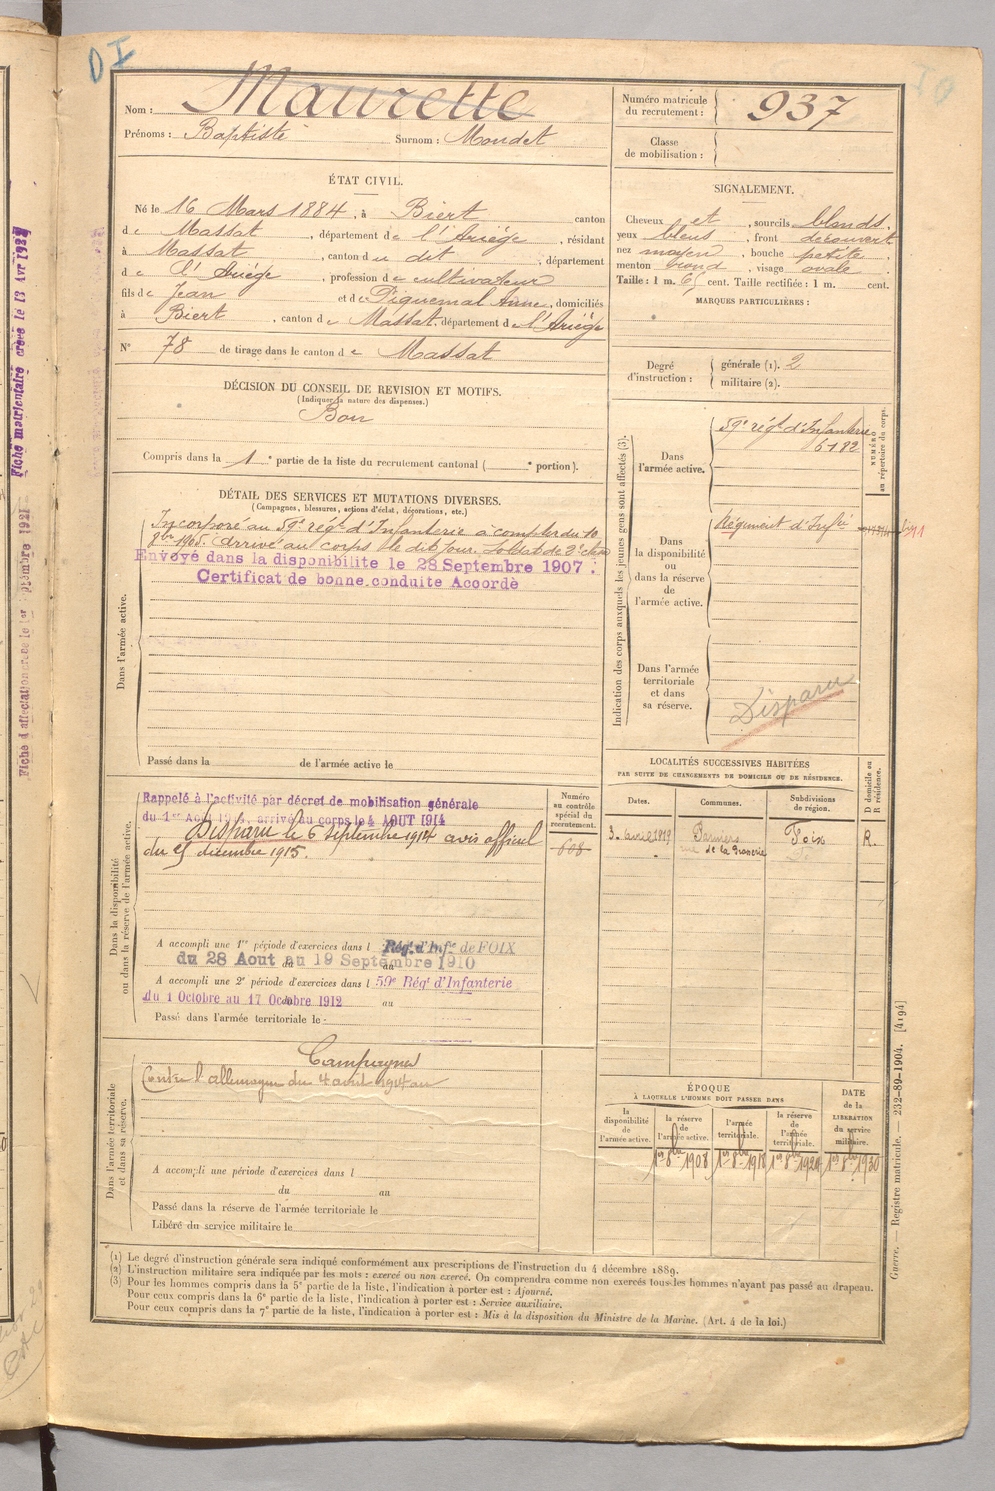 DI
Nom : Maurette
Prénoms : Baptiste Surnom : Moudet
Numéro matricule du recrutement : 937
Classe de mobilisation :
ÉTAT CIVIL.
Né le 16 Mars 1884, à Biert canton
de Massat, département de l'Ariége, résidant
à Massat, canton du dit, département
de l'Ariége, profession de cultivateur
fils de Jean et de Piquemal Anne, domiciliés
à Biert, canton de Massat, département de l'Ariége
N° 78 de tirage dans le canton de Massat
SIGNALEMENT.
Cheveux et, sourcils blonds,
yeux bleus, front découvert
nez moyen, bouche petite,
menton rond, visage ovale.
Taille : 1 m. 65 cent. Taille rectifiée : 1 m. cent.
MARQUES PARTICULIÈRES :
Degré d'instruction : générale (1). 2
militaire (2).
DÉCISION DU CONSEIL DE REVISION ET MOTIFS.
(Indiquer la nature des dispenses.)
Bon
Compris dans la 1e partie de la liste du recrutement cantonal ( e portion).
DÉTAIL DES SERVICES ET MUTATIONS DIVERSES.
(Campagnes, blessures, actions d'éclat, décorations, etc.)
Dans l'armée active.
Incorporé au 59e régt d'Infanterie à compter du 10
8bre 1905. Arrivé au corps le dit jour. Soldat de 2e classe
Envoyé dans la disponibilite le 28 Septembre 1907 :
Certificat de bonne conduite Accordè
Passé dans la de l'armée active le
Indication des corps auxquels les jeunes gens sont affectés (3).
NUMÉRO au répertoire du corps.
Dans l'armée active.
59e régt d'Infanterie
6182
Dans la disponibilité ou dans la réserve de l'armée active.
Régiment d'Infie
Dans l'armée territoriale et dans sa réserve.
Disparu
Dans la disponibilité ou dans la réserve de l'armée active.
Rappelé à l'activité par décret de mobilisation générale
du 1er Aout 1914, arrivé au corps le 4 AOUT 1914
Disparu le 6 septembre 1914 avis officiel
du 25 décembre 1915.
Numéro au contrôle spécial du recrutement.
608
A accompli une 1re période d'exercices dans l Régt d'Infie de FOIX
du 28 Aout au 19 Septembre 1910
A accompli une 2e période d'exercices dans l 59e Régt d'Infanterie
du 1 Octobre au 17 Octobre 1912 au
Passé dans l'armée territoriale le
LOCALITÉS SUCCESSIVES HABITÉES
PAR SUITE DE CHANGEMENTS DE DOMICILE OU DE RÉSIDENCE.
Dates. Communes. Subdivisions de région. D domicile ou R résidence.
3. avril 1919 Pamiers Foix R.
rue de la
Dans l'armée territoriale et dans sa réserve.
Campagnes
Contre l'allemagne du 4 aout 1914 au
A accompli une période d'exercices dans l
du au
Passé dans la réserve de l'armée territoriale le
Libéré du service militaire le
ÉPOQUE
À LAQUELLE L'HOMME DOIT PASSER DANS
la disponibilité de l'armée active.
la réserve de l'armée active.
l'armée territoriale.
la réserve de l'armée territoriale.
DATE de la LIBÉRATION du service militaire.
1er 8bre 1908 1er 8bre 1918 1er 8bre 1924 1er 8bre 1930
(1) Le degré d'instruction générale sera indiqué conformément aux prescriptions de l'instruction du 4 décembre 1889.
(2) L'instruction militaire sera indiquée par les mots : exercé ou non exercé. On comprendra comme non exercés tous les hommes n'ayant pas passé au drapeau.
(3) Pour les hommes compris dans la 5e partie de la liste, l'indication à porter est : Ajourné.
Pour ceux compris dans la 6e partie de la liste, l'indication à porter est : Service auxiliaire.
Pour ceux compris dans la 7e partie de la liste, l'indication à porter est : Mis à la disposition du Ministre de la Marine. (Art. 4 de la loi.)
Guerre. — Registre matricule. — 232-89-1904. [4194]